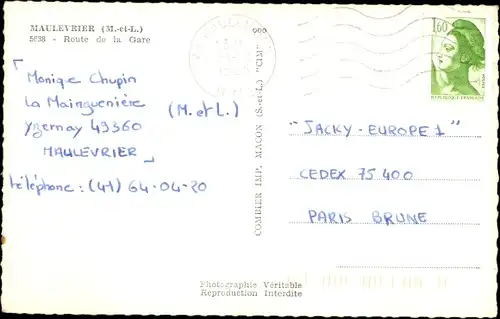 MAULEVRIER (M.-et-L.)
5638 - Route de la Gare
Monique Chupin
La Mainguenière
Yzernay 49360
(M. et L.)
MAULEVRIER
téléphone : (41) 64-04-20
COMBIER IMP. MACON (S.-et-L.) "CIM"
1,60
"JACKY-EUROPE 1"
CEDEX 75400
PARIS BRUNE
Photographie Véritable
Reproduction Interdite